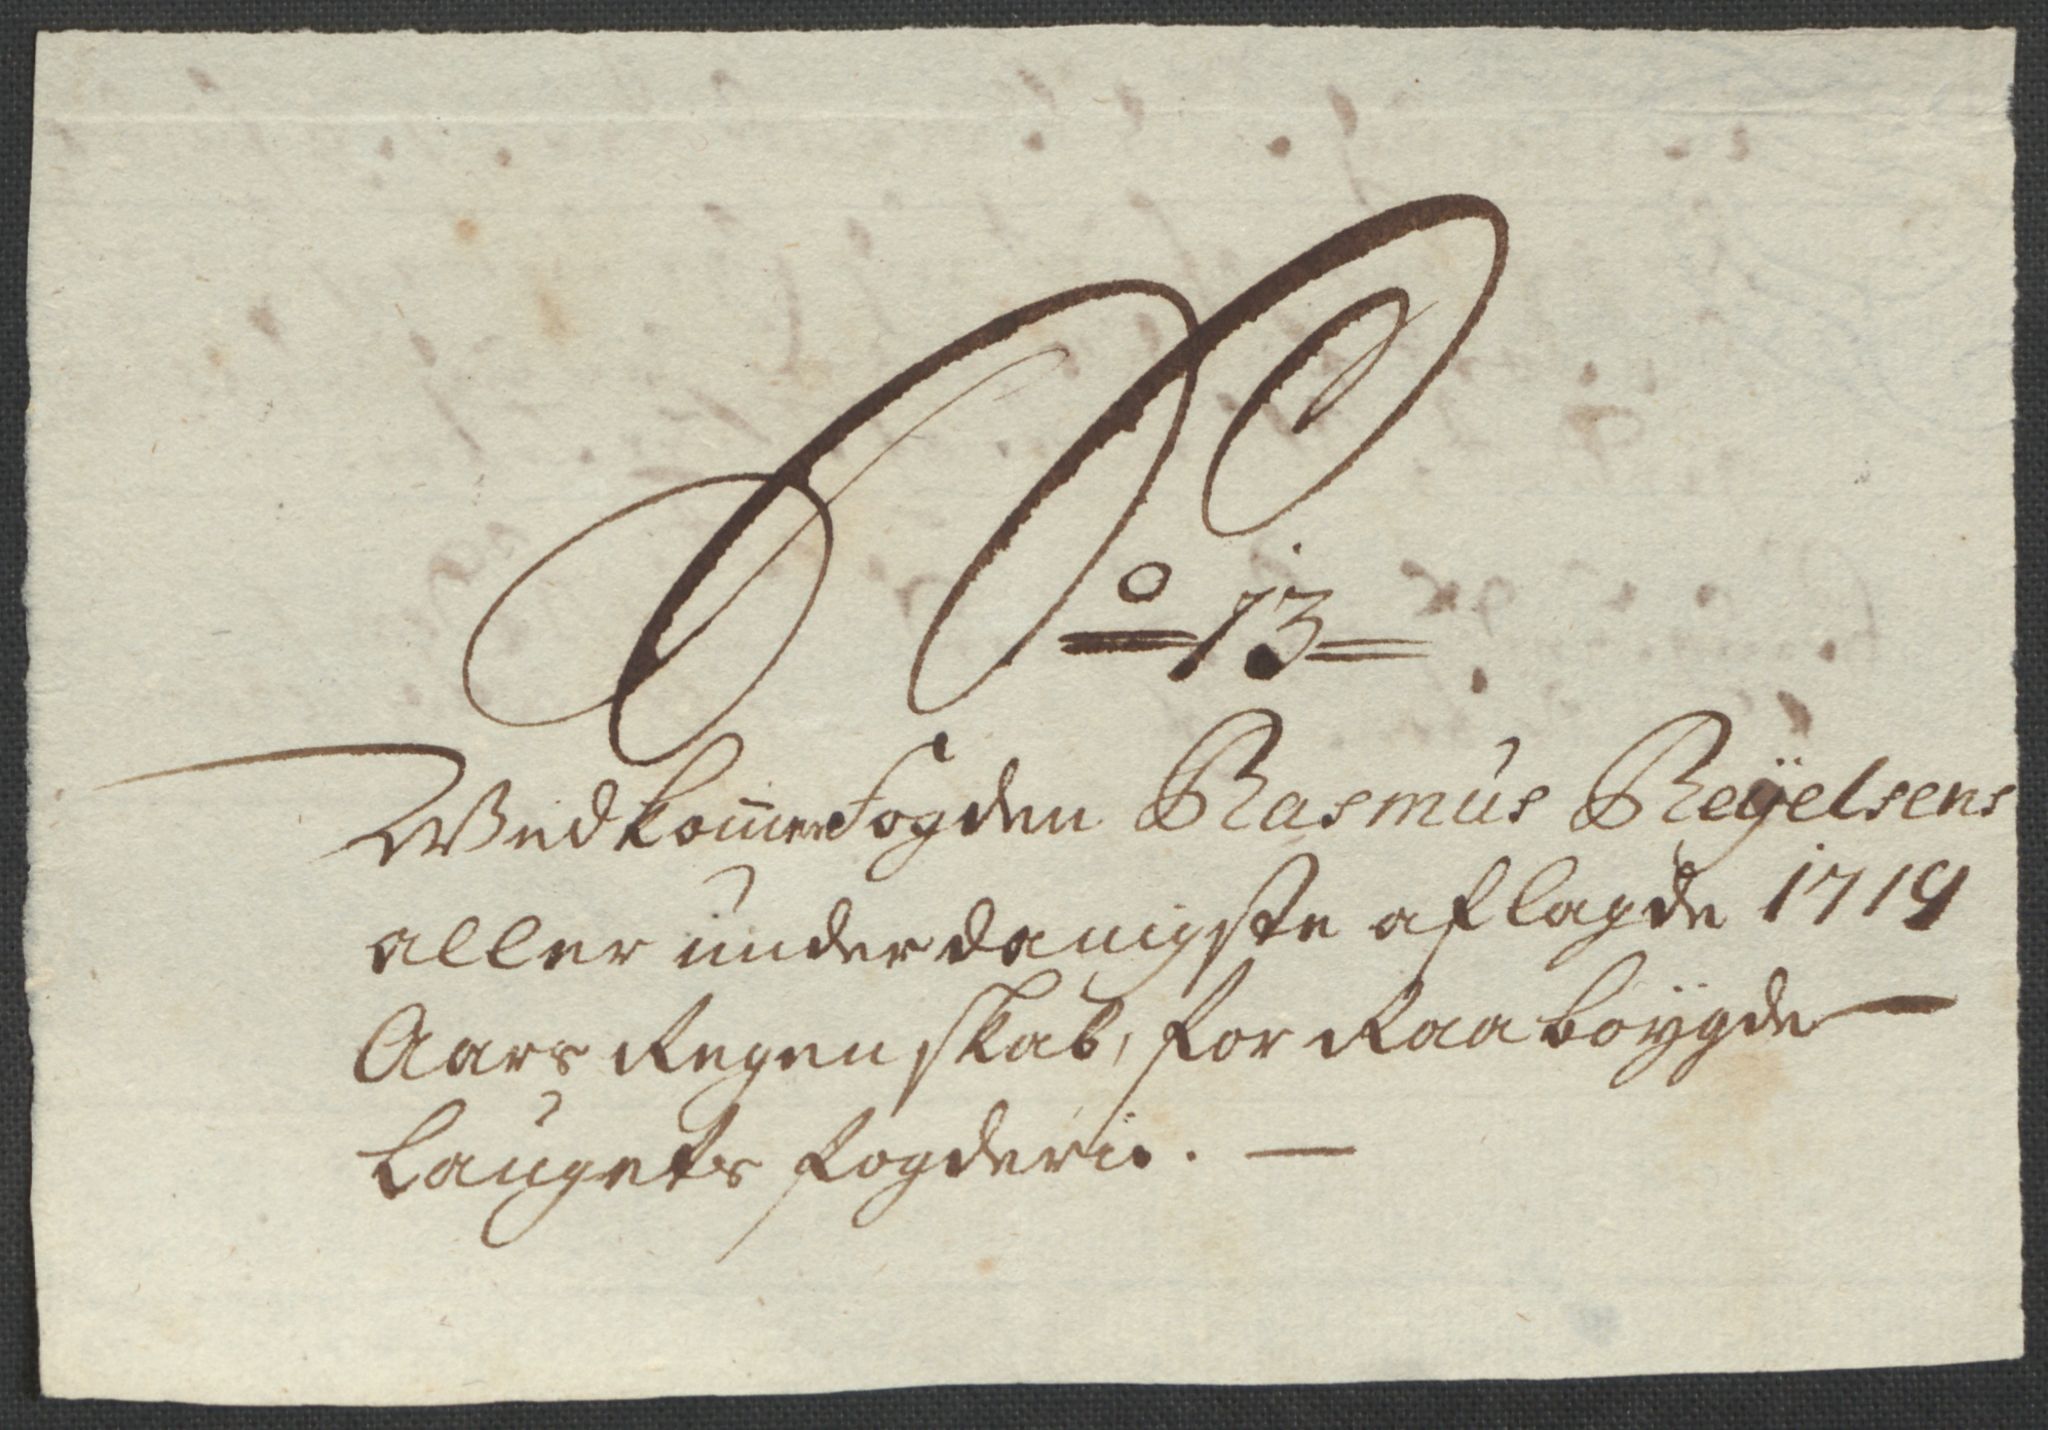 No 13
Wedkommer Fogden Rasmus Reÿelsens
aller underdanigste aflagde 1719
Aars Regenskab, for Raaböygde
Laugets fogderie.